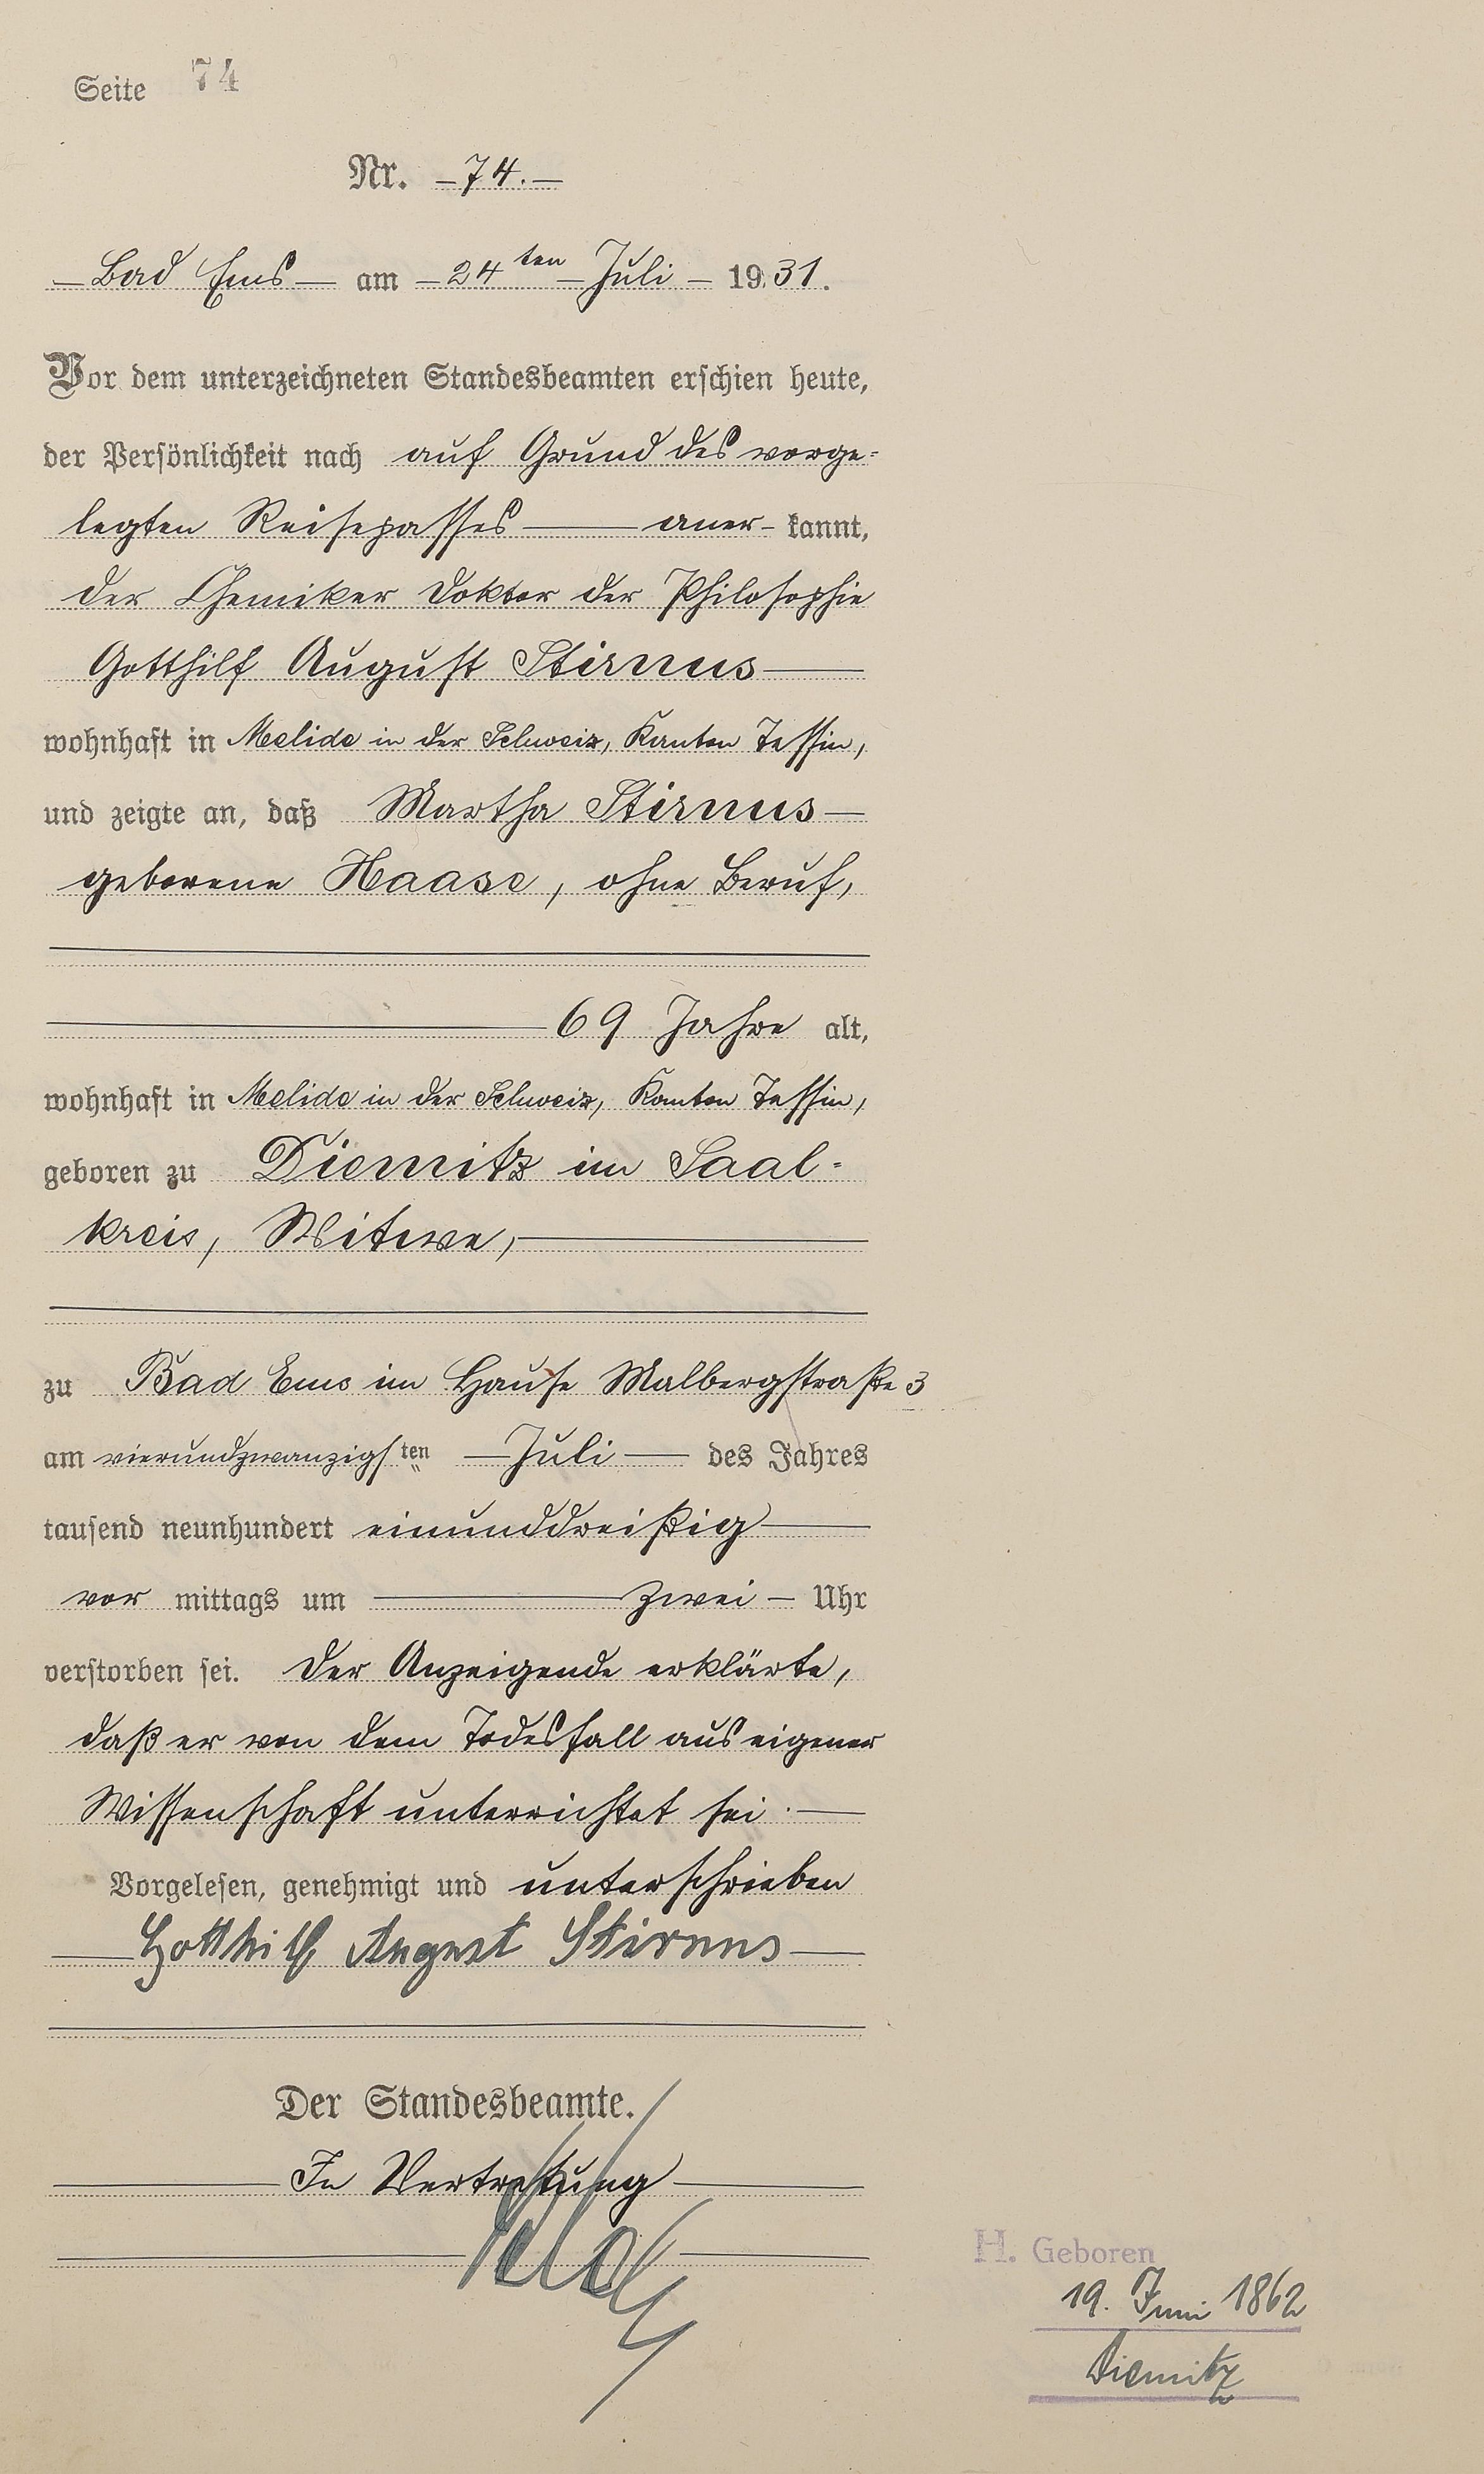 Seite 74
Nr. 74.
Bad Ems am 24ten Juli 1931.
Vor dem unterzeichneten Standesbeamten erschien heute,
der Persönlichkeit nach auf Grund des vorge-
legten Reisepasses aner- kannt,
der Chemiker Doktor der Philosophie
Gotthilf August Stirnus
wohnhaft in Melide in der Schweiz, Kanton Tessin,
und zeigte an, daß Martha Stirnus
geborene Haase, ohne Beruf,
69 Jahre alt,
wohnhaft in Melide in der Schweiz, Kanton Tessin,
geboren zu Diemitz im Saal-
kreis, Witwe,
zu Bad Ems im Hause Malbergstraße 3
am vierundzwanzigsten Juli des Jahres
tausend neunhundert einunddreißig
vor mittags um zwei Uhr
verstorben sei. Der Anzeigende erklärte,
daß er von dem Todesfall aus eigener
Wissenschaft unterrichtet sei.
Vorgelesen, genehmigt und unterschrieben
Gotthilf August Stirnus
Der Standesbeamte.
In Vertretung
H. Geboren
19. Juni 1862
Diemitz